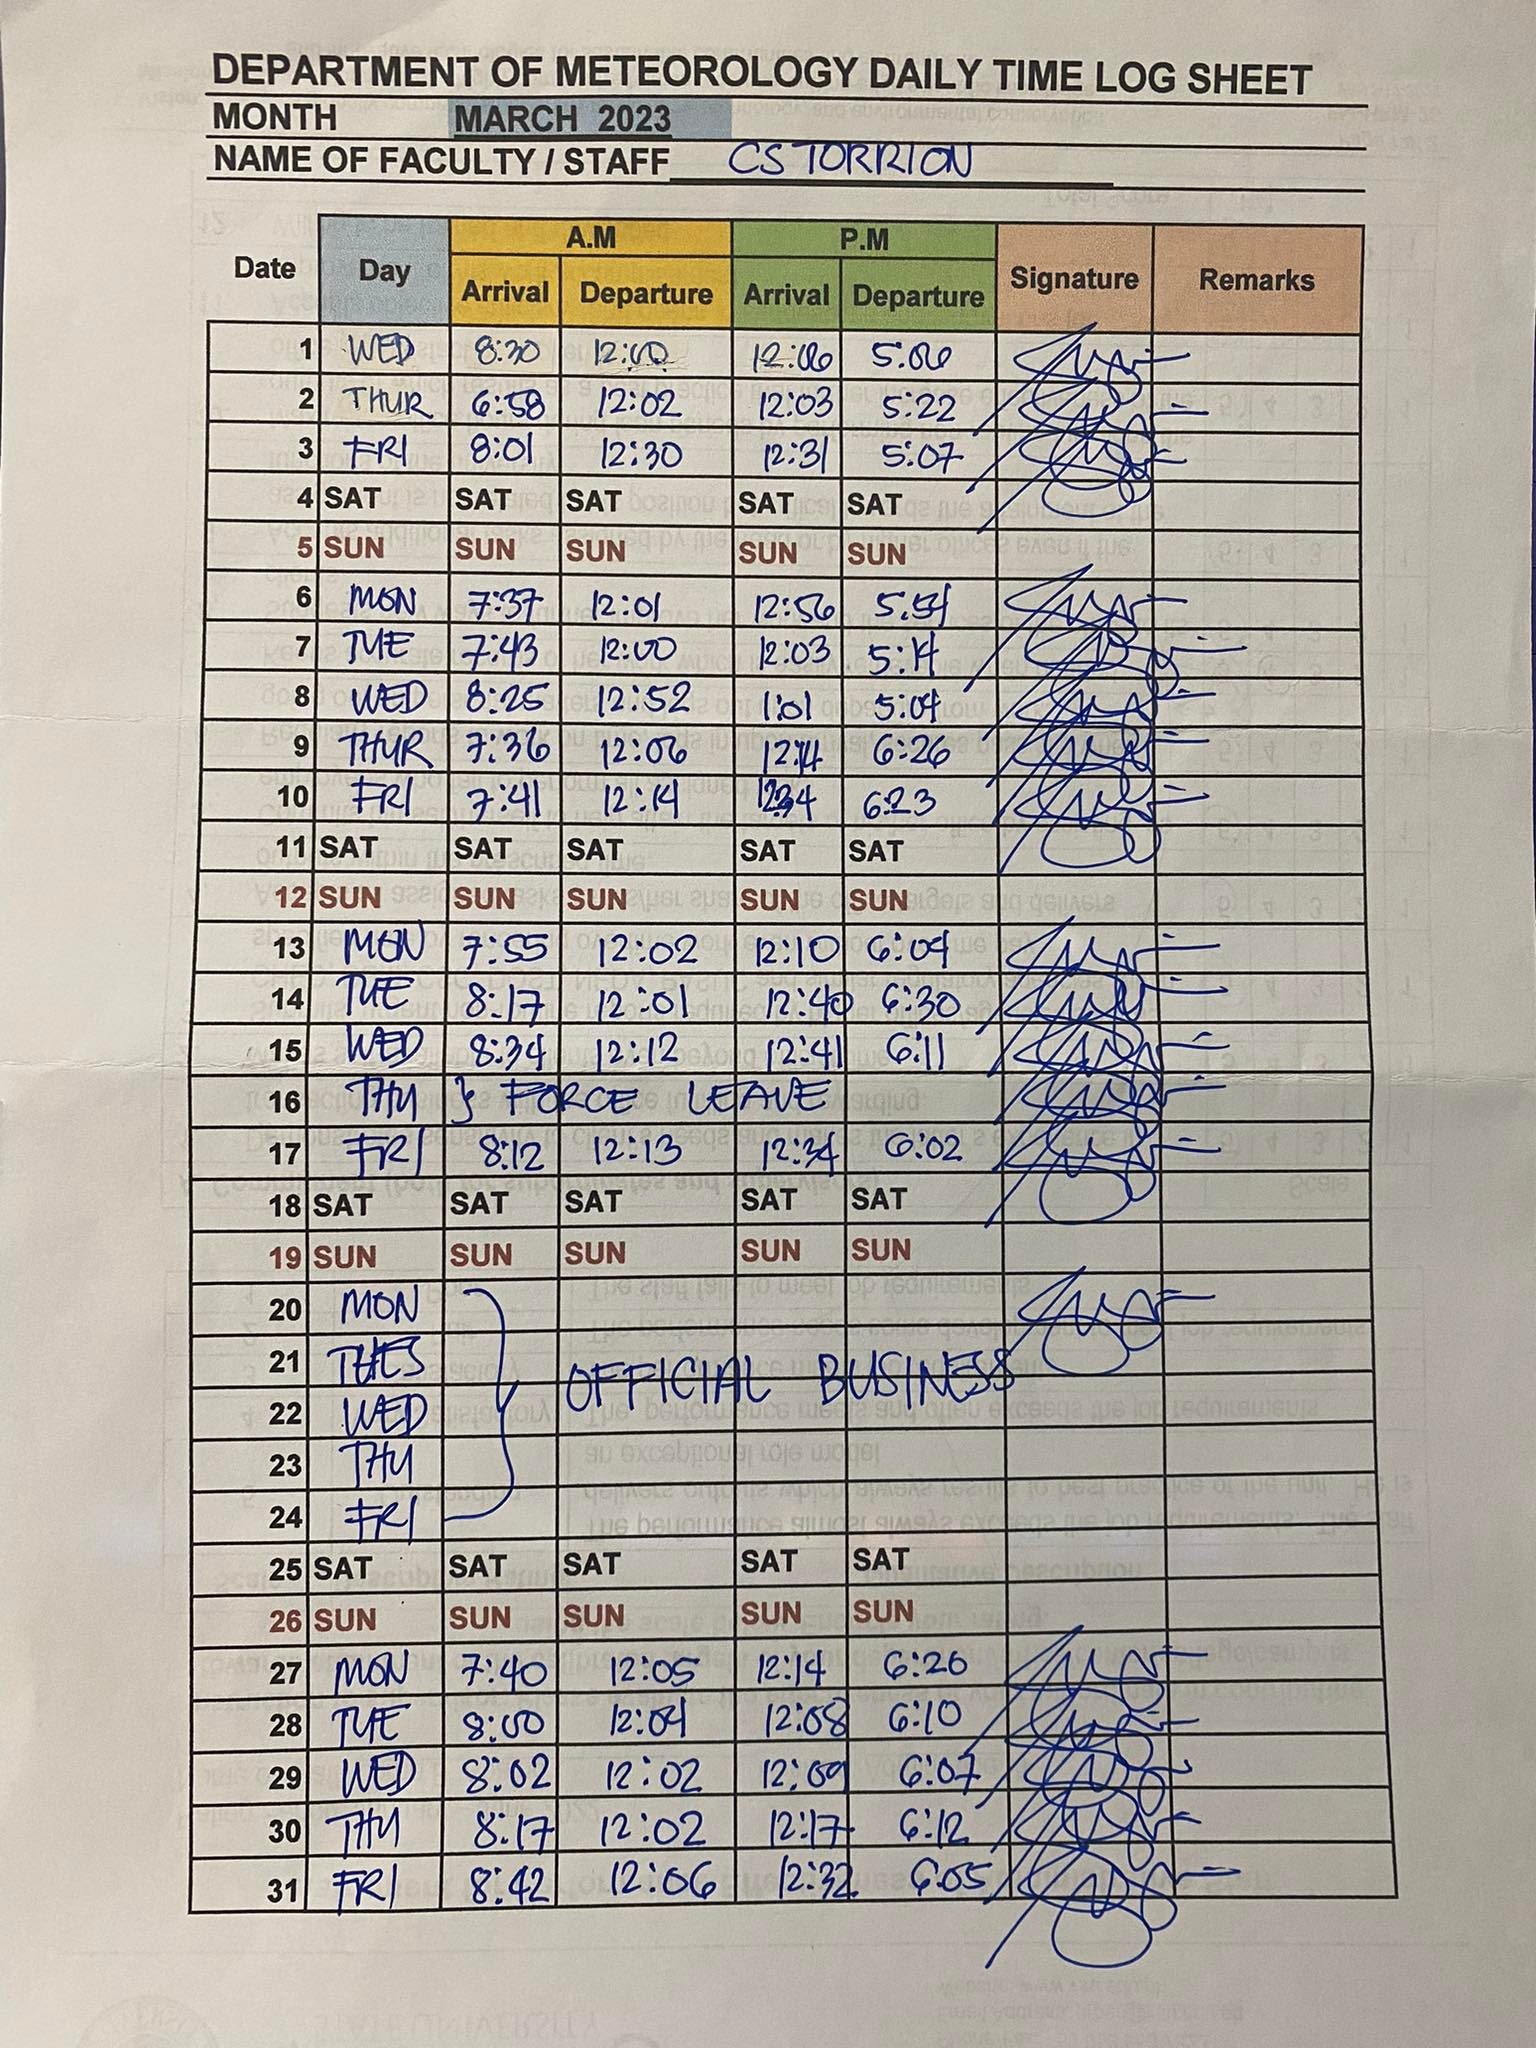 DEPARTMENT OF METEOROLOGY DAILY TIME LOG SHEET
MONTH MARCH 2023
NAME OF FACULTY / STAFF CS TORRION
Date Day A.M P.M Signature Remarks
Arrival Departure Arrival Departure
1 WED 8:30 12:00 12:06 5:06
2 THUR 6:58 12:02 12:03 5:22
3 FRI 8:01 12:30 12:31 5:07
4 SAT SAT SAT SAT SAT
5 SUN SUN SUN SUN SUN
6 MON 7:37 12:01 12:56 5:54
7 TUE 7:43 12:00 12:03 5:14
8 WED 8:25 12:52 1:01 5:04
9 THUR 7:36 12:06 12:14 6:26
10 FRI 7:41 12:14 6:23
11 SAT SAT SAT SAT SAT
12 SUN SUN SUN SUN SUN
13 MON 7:55 12:02 12:10 6:04
14 TUE 8:17 12:01 12:40 6:30
15 WED 8:34 12:12 12:41 6:11
16 THU } FORCE LEAVE
17 FRI 8:12 12:13 12:34 6:02
18 SAT SAT SAT SAT SAT
19 SUN SUN SUN SUN SUN
20 MON
21 TUES OFFICIAL BUSINESS
22 WED
23 THU
24 FRI
25 SAT SAT SAT SAT SAT
26 SUN SUN SUN SUN SUN
27 MON 7:40 12:05 12:14 6:20
28 TUE 8:00 12:04 12:08 6:10
29 WED 8:02 12:02 12:09 6:07
30 THU 8:17 12:02 12:17 6:12
31 FRI 8:42 12:06 12:32 6:05